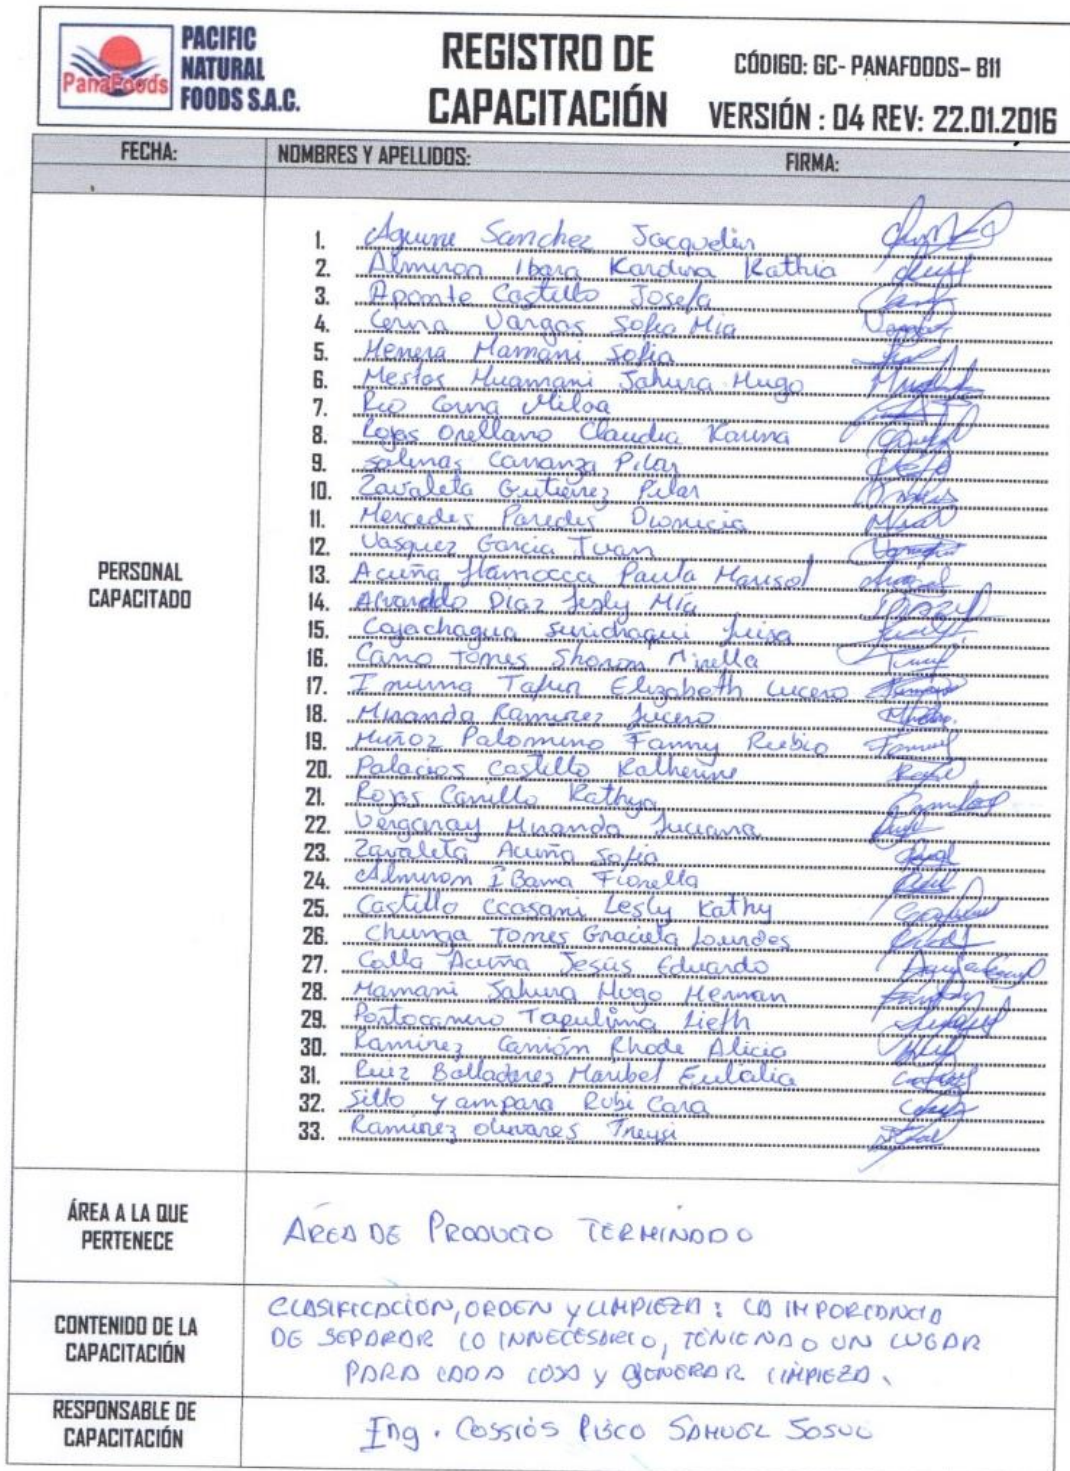 PanaFoods
PACIFIC
NATURAL
FOODS S.A.C.
REGISTRO DE
CAPACITACIÓN
CÓDIGO: GC- PANAFOODS- B11
VERSIÓN : 04 REV: 22.01.2016
FECHA: NOMBRES Y APELLIDOS: FIRMA:
PERSONAL
CAPACITADO
1. Aguirre Sanchez Jacquelin
2. Almiron Ibara Kathia
3. Aponte Castillo Josefa
4. Cerna Vargas Sofia Mia
5. Herrera Mamani Sofia
6. Mestas Huamani Sahura Hugo
7. Rio
8. Rojas Orellano Claudia Karina
9. Salinas Carranza Pilar
10. Zavaleta Gutierrez Pilar
11. Mercedes Paredes Dionicia
12. Vasquez Garcia Juan
13. Acuña Llamocca Paula Marisol
14. Alvarado Diaz Lesly Mía
15. Cajachagua Surichaqui Luisa
16. Cano Torres Sharon Mirella
17. Elizabeth Lucero
18. Miranda Ramirez Lucero
19. Muñoz Palomino Fanny Rubio
20. Palacios Castillo Katherine
21. Rojas Carrillo Kathya
22. Vergaray Miranda Luciana
23. Zavaleta Acuña Sofia
24. Almiron IBarra Fiorella
25. Castillo Ccasani Lesly Kathy
26. Chunga Torres Graciela Lourdes
27. Calla Acuña Jesús Eduardo
28. Mamani Sahura Hugo Hernan
29. Portocarrero Tapullima Lieth
30. Ramirez Carrión Rhode Alicia
31. Ruiz Balladares Maribel Eulalia
32. Sillo Yampara Rubi Cara
33. Ramirez Olivares Treysi
ÁREA A LA QUE
PERTENECE
AREA DE PRODUCTO TERMINADO
CONTENIDO DE LA
CAPACITACIÓN
CLASIFICACION, ORDEN Y LIMPIEZA : LA IMPORTANCIA
DE SEPARAR LO INNECESARIO, TENIENDO UN LUGAR
PARA CADA COSA Y GENERAR LIMPIEZA.
RESPONSABLE DE
CAPACITACIÓN
Ing. Cossios Risco Samuel Josue